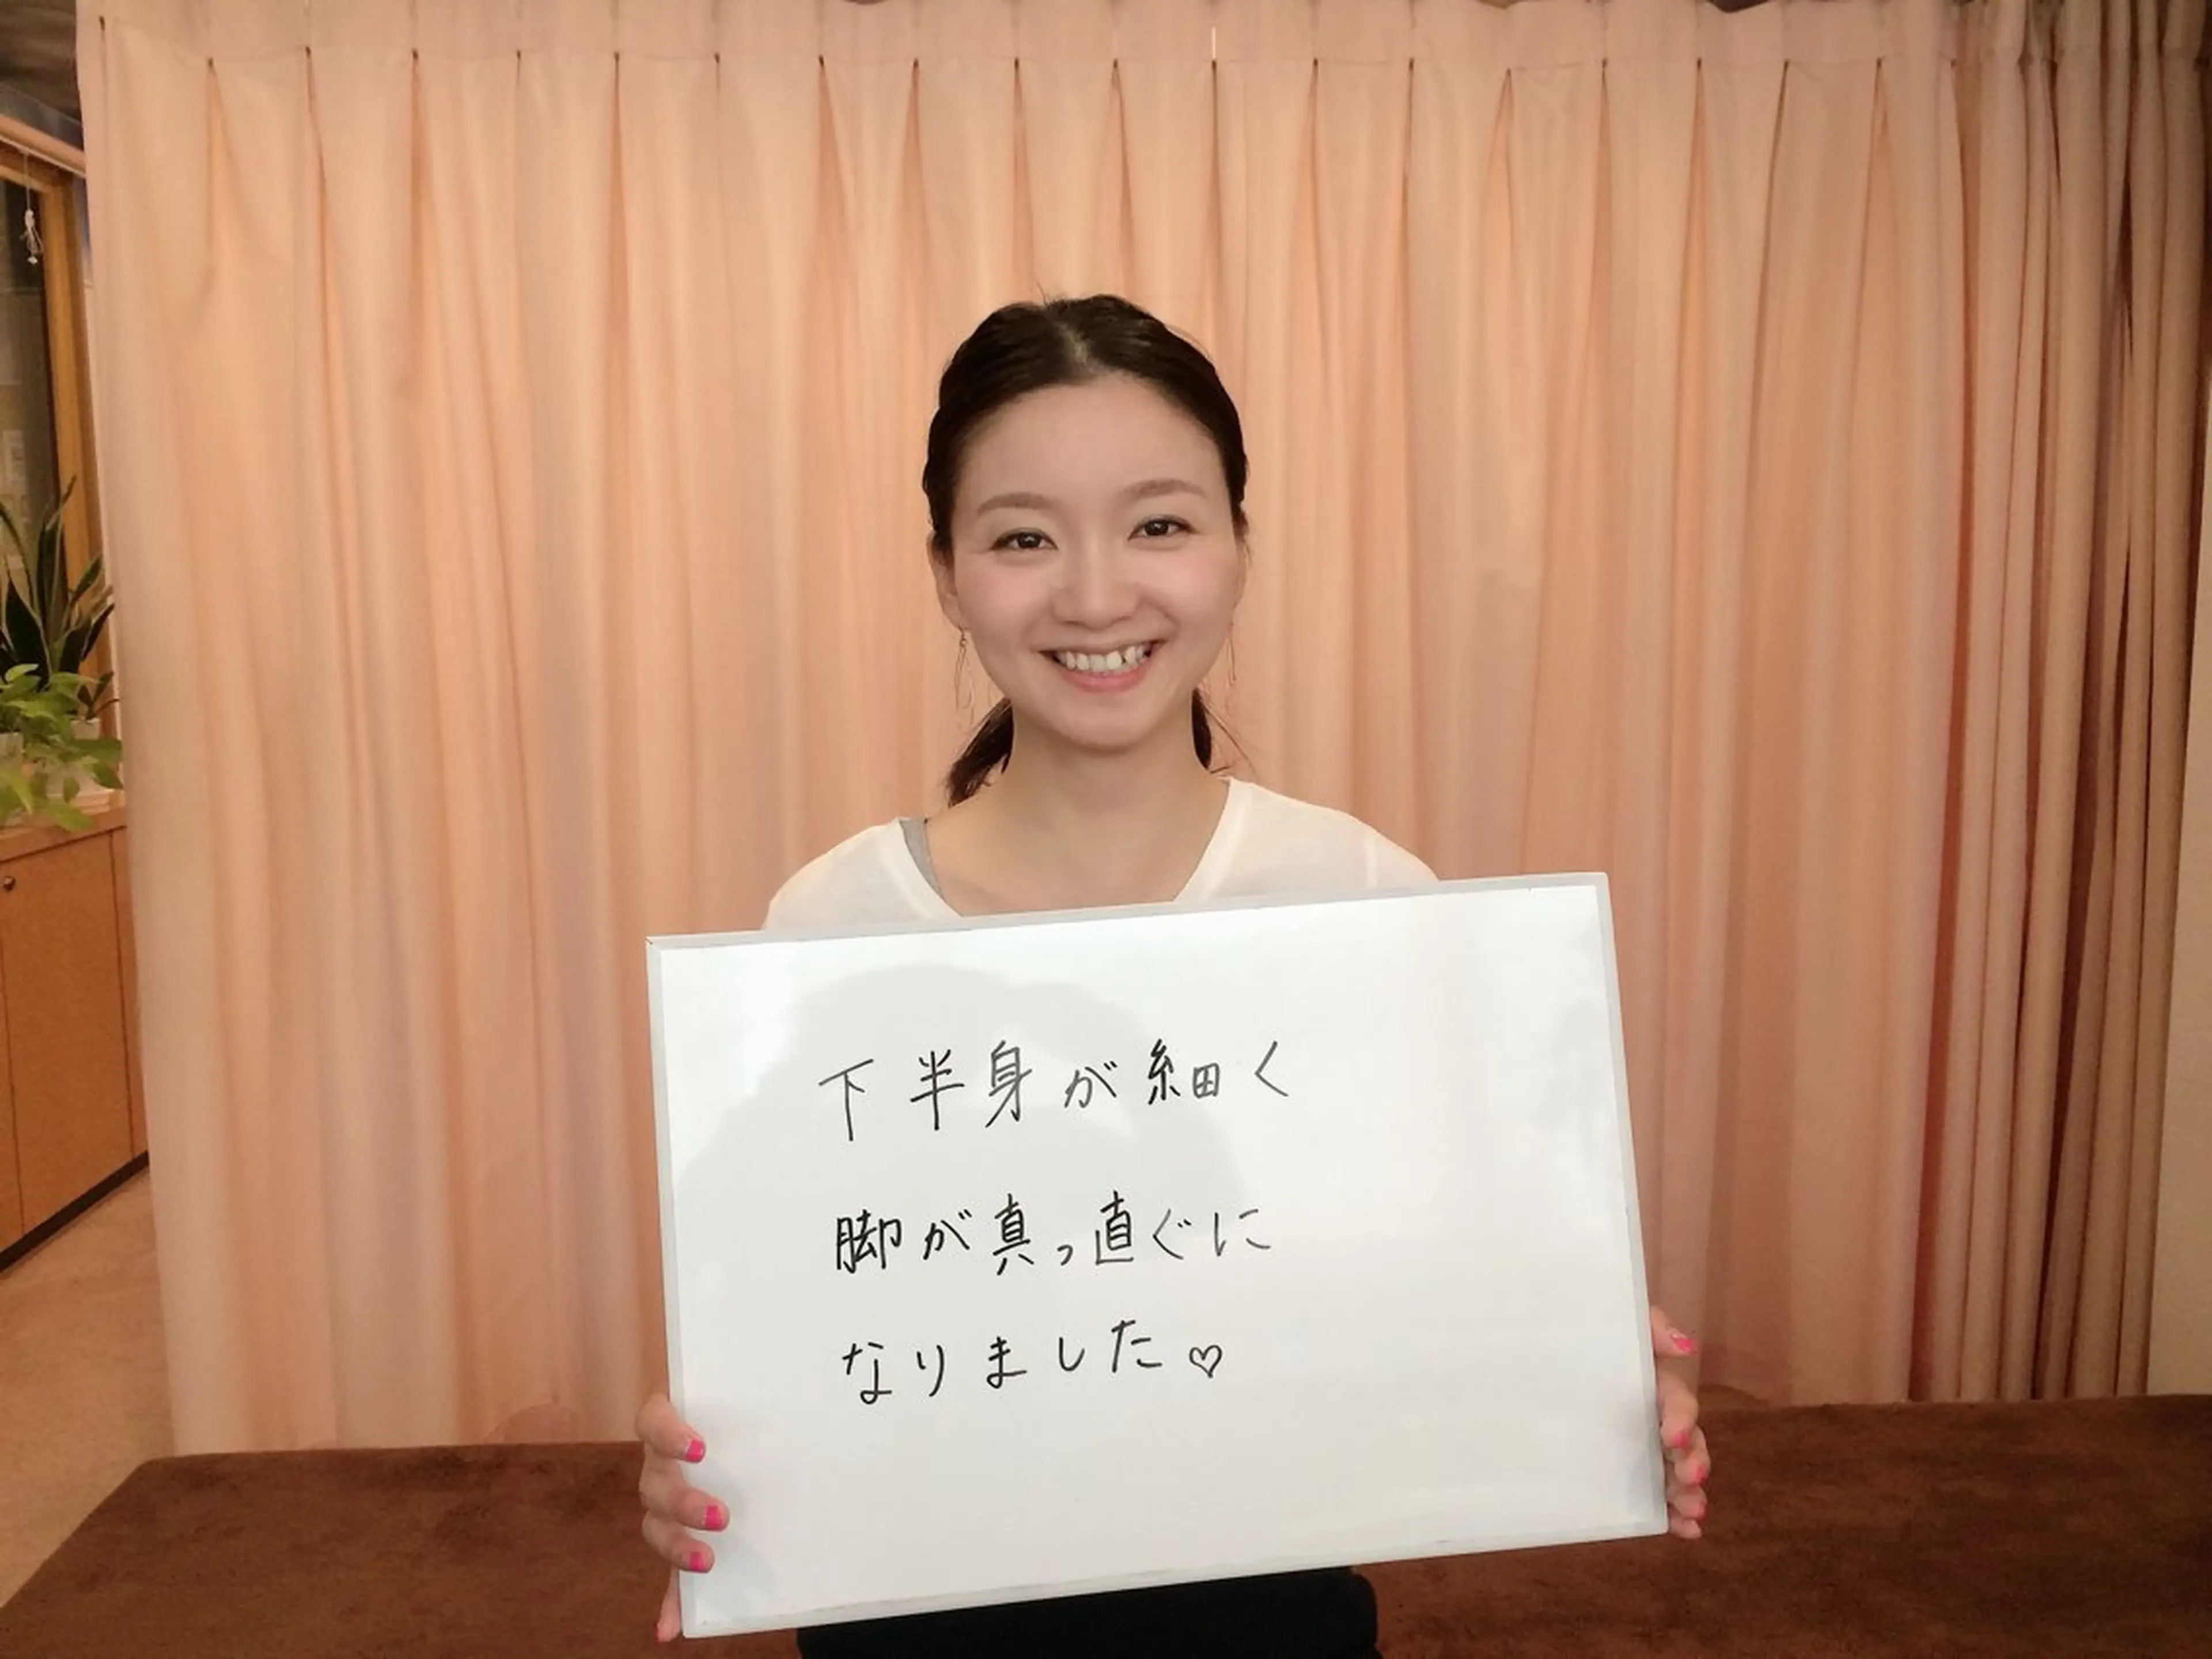 下半身が細く
脚が真っ直ぐに
なりました♡